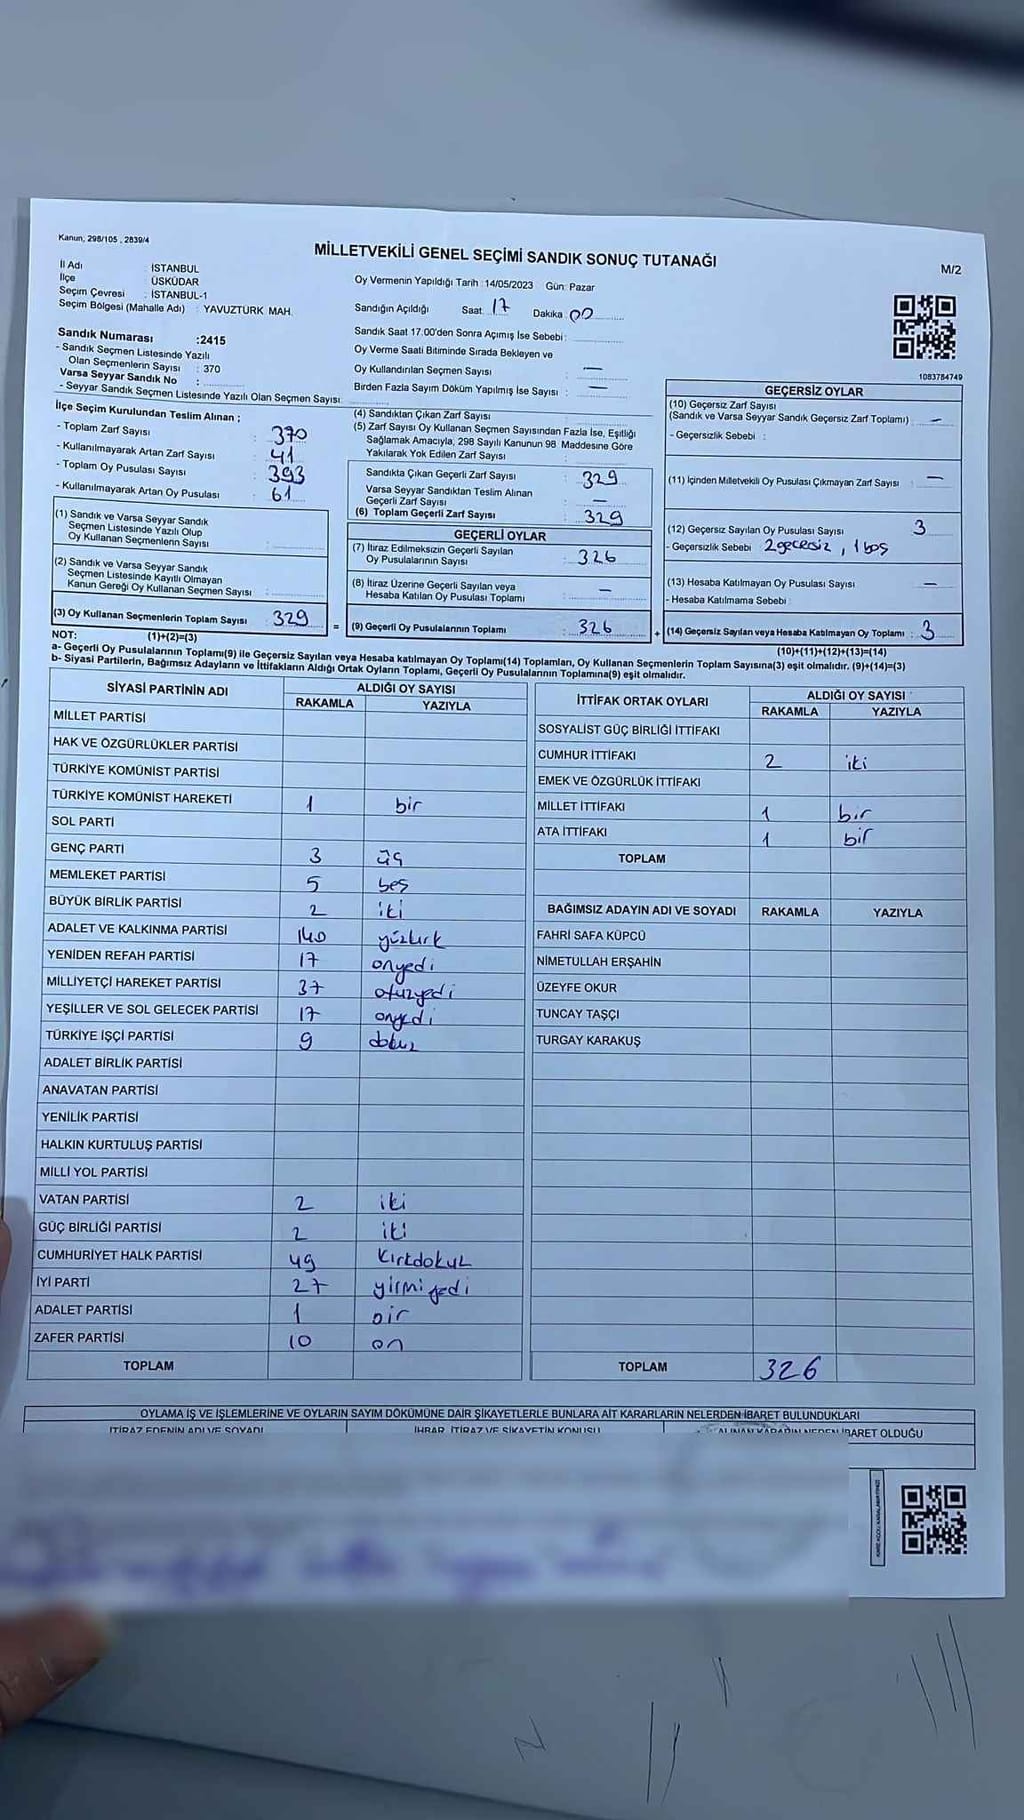 Kanun, 298/105 , 2839/4
MİLLETVEKİLİ GENEL SEÇİMİ SANDIK SONUÇ TUTANAĞI
M/2
İl Adı : İSTANBUL
İlçe : ÜSKÜDAR
Seçim Çevresi : İSTANBUL-1
Seçim Bölgesi (Mahalle Adı) : YAVUZTÜRK MAH.
Oy Vermenin Yapıldığı Tarih : 14/05/2023 Gün: Pazar
Sandığın Açıldığı Saat: 17 Dakika: 00
Sandık Saat 17.00'den Sonra Açımış İse Sebebi :
Oy Verme Saati Bitiminde Sırada Bekleyen ve
Oy Kullandırılan Seçmen Sayısı : —
Birden Fazla Sayım Döküm Yapılmış İse Sayısı : —
Sandık Numarası :2415
- Sandık Seçmen Listesinde Yazılı
Olan Seçmenlerin Sayısı : 370
Varsa Seyyar Sandık No :
- Seyyar Sandık Seçmen Listesinde Yazılı Olan Seçmen Sayısı:
1083784749
İlçe Seçim Kurulundan Teslim Alınan ;
- Toplam Zarf Sayısı : 370
- Kullanılmayarak Artan Zarf Sayısı : 41
- Toplam Oy Pusulası Sayısı : 393
- Kullanılmayarak Artan Oy Pusulası : 61
(1) Sandık ve Varsa Seyyar Sandık
Seçmen Listesinde Yazılı Olup
Oy Kullanan Seçmenlerin Sayısı :
(2) Sandık ve Varsa Seyyar Sandık
Seçmen Listesinde Kayıtlı Olmayan
Kanun Gereği Oy Kullanan Seçmen Sayısı :
(3) Oy Kullanan Seçmenlerin Toplam Sayısı : 329
(4) Sandıktan Çıkan Zarf Sayısı :
(5) Zarf Sayısı Oy Kullanan Seçmen Sayısından Fazla İse, Eşitliği
Sağlamak Amacıyla, 298 Sayılı Kanunun 98. Maddesine Göre
Yakılarak Yok Edilen Zarf Sayısı :
Sandıkta Çıkan Geçerli Zarf Sayısı : 329
Varsa Seyyar Sandıktan Teslim Alınan
Geçerli Zarf Sayısı : —
(6) Toplam Geçerli Zarf Sayısı : 329
GEÇERLİ OYLAR
(7) İtiraz Edilmeksizin Geçerli Sayılan
Oy Pusulalarının Sayısı : 326
(8) İtiraz Üzerine Geçerli Sayılan veya
Hesaba Katılan Oy Pusulası Toplamı : —
= (9) Geçerli Oy Pusulalarının Toplamı : 326
GEÇERSİZ OYLAR
(10) Geçersiz Zarf Sayısı
(Sandık ve Varsa Seyyar Sandık Geçersiz Zarf Toplamı) : —
- Geçersizlik Sebebi :
(11) İçinden Milletvekili Oy Pusulası Çıkmayan Zarf Sayısı : —
(12) Geçersiz Sayılan Oy Pusulası Sayısı : 3
- Geçersizlik Sebebi : 2 gecersiz, 1 boş
(13) Hesaba Katılmayan Oy Pusulası Sayısı : —
- Hesaba Katılmama Sebebi :
+ (14) Geçersiz Sayılan veya Hesaba Katılmayan Oy Toplamı : 3
NOT: (1)+(2)=(3)
(10)+(11)+(12)+(13)=(14)
a- Geçerli Oy Pusulalarının Toplamı(9) ile Geçersiz Sayılan veya Hesaba katılmayan Oy Toplamı(14) Toplamları, Oy Kullanan Seçmenlerin Toplam Sayısına(3) eşit olmalıdır. (9)+(14)=(3)
b- Siyasi Partilerin, Bağımsız Adayların ve İttifakların Aldığı Ortak Oyların Toplamı, Geçerli Oy Pusulalarının Toplamına(9) eşit olmalıdır.
SİYASİ PARTİNİN ADI ALDIĞI OY SAYISI
RAKAMLA YAZIYLA
MİLLET PARTİSİ
HAK VE ÖZGÜRLÜKLER PARTİSİ
TÜRKİYE KOMÜNİST PARTİSİ
TÜRKİYE KOMÜNİST HAREKETİ 1 bir
SOL PARTİ
GENÇ PARTİ 3 üç
MEMLEKET PARTİSİ 5 beş
BÜYÜK BİRLİK PARTİSİ 2 iki
ADALET VE KALKINMA PARTİSİ 140 yüzkırk
YENİDEN REFAH PARTİSİ 17 onyedi
MİLLİYETÇİ HAREKET PARTİSİ 37 otuzyedi
YEŞİLLER VE SOL GELECEK PARTİSİ 17 onyedi
TÜRKİYE İŞÇİ PARTİSİ 9 dokuz
ADALET BİRLİK PARTİSİ
ANAVATAN PARTİSİ
YENİLİK PARTİSİ
HALKIN KURTULUŞ PARTİSİ
MİLLİ YOL PARTİSİ
VATAN PARTİSİ 2 iki
GÜÇ BİRLİĞİ PARTİSİ 2 iki
CUMHURİYET HALK PARTİSİ 49 kırkdokuz
İYİ PARTİ 27 yirmi yedi
ADALET PARTİSİ 1 bir
ZAFER PARTİSİ 10 on
TOPLAM
İTTİFAK ORTAK OYLARI ALDIĞI OY SAYISI
RAKAMLA YAZIYLA
SOSYALİST GÜÇ BİRLİĞİ İTTİFAKI
CUMHUR İTTİFAKI 2 iki
EMEK VE ÖZGÜRLÜK İTTİFAKI
MİLLET İTTİFAKI 1 bir
ATA İTTİFAKI 1 bir
TOPLAM
BAĞIMSIZ ADAYIN ADI VE SOYADI RAKAMLA YAZIYLA
FAHRİ SAFA KÜPCÜ
NİMETULLAH ERŞAHİN
ÜZEYFE OKUR
TUNCAY TAŞÇI
TURGAY KARAKUŞ
TOPLAM 326
OYLAMA İŞ VE İŞLEMLERİNE VE OYLARIN SAYIM DÖKÜMÜNE DAİR ŞİKAYETLERLE BUNLARA AİT KARARLARIN NELERDEN İBARET BULUNDUKLARI
İTİRAZ EDENİN ADI VE SOYADI İHBAR, İTİRAZ VE ŞİKAYETİN KONUSU ALINAN KARARIN NEDEN İBARET OLDUĞU